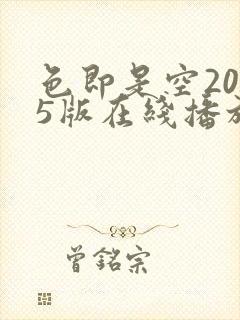 色即是空20
5版在綫播放
曾銘宗